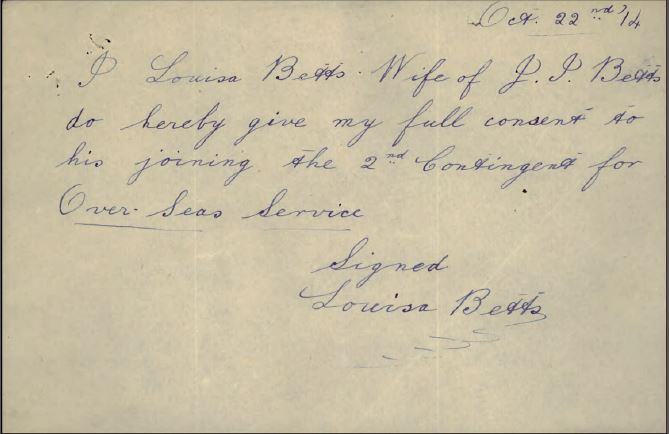 Oct. 22nd/14
I Louisa Betts. Wife of J. P. Betts
do hereby give my full consent to
his joining the 2nd Contingent for
Over-Seas Service
Signed
Louisa Betts